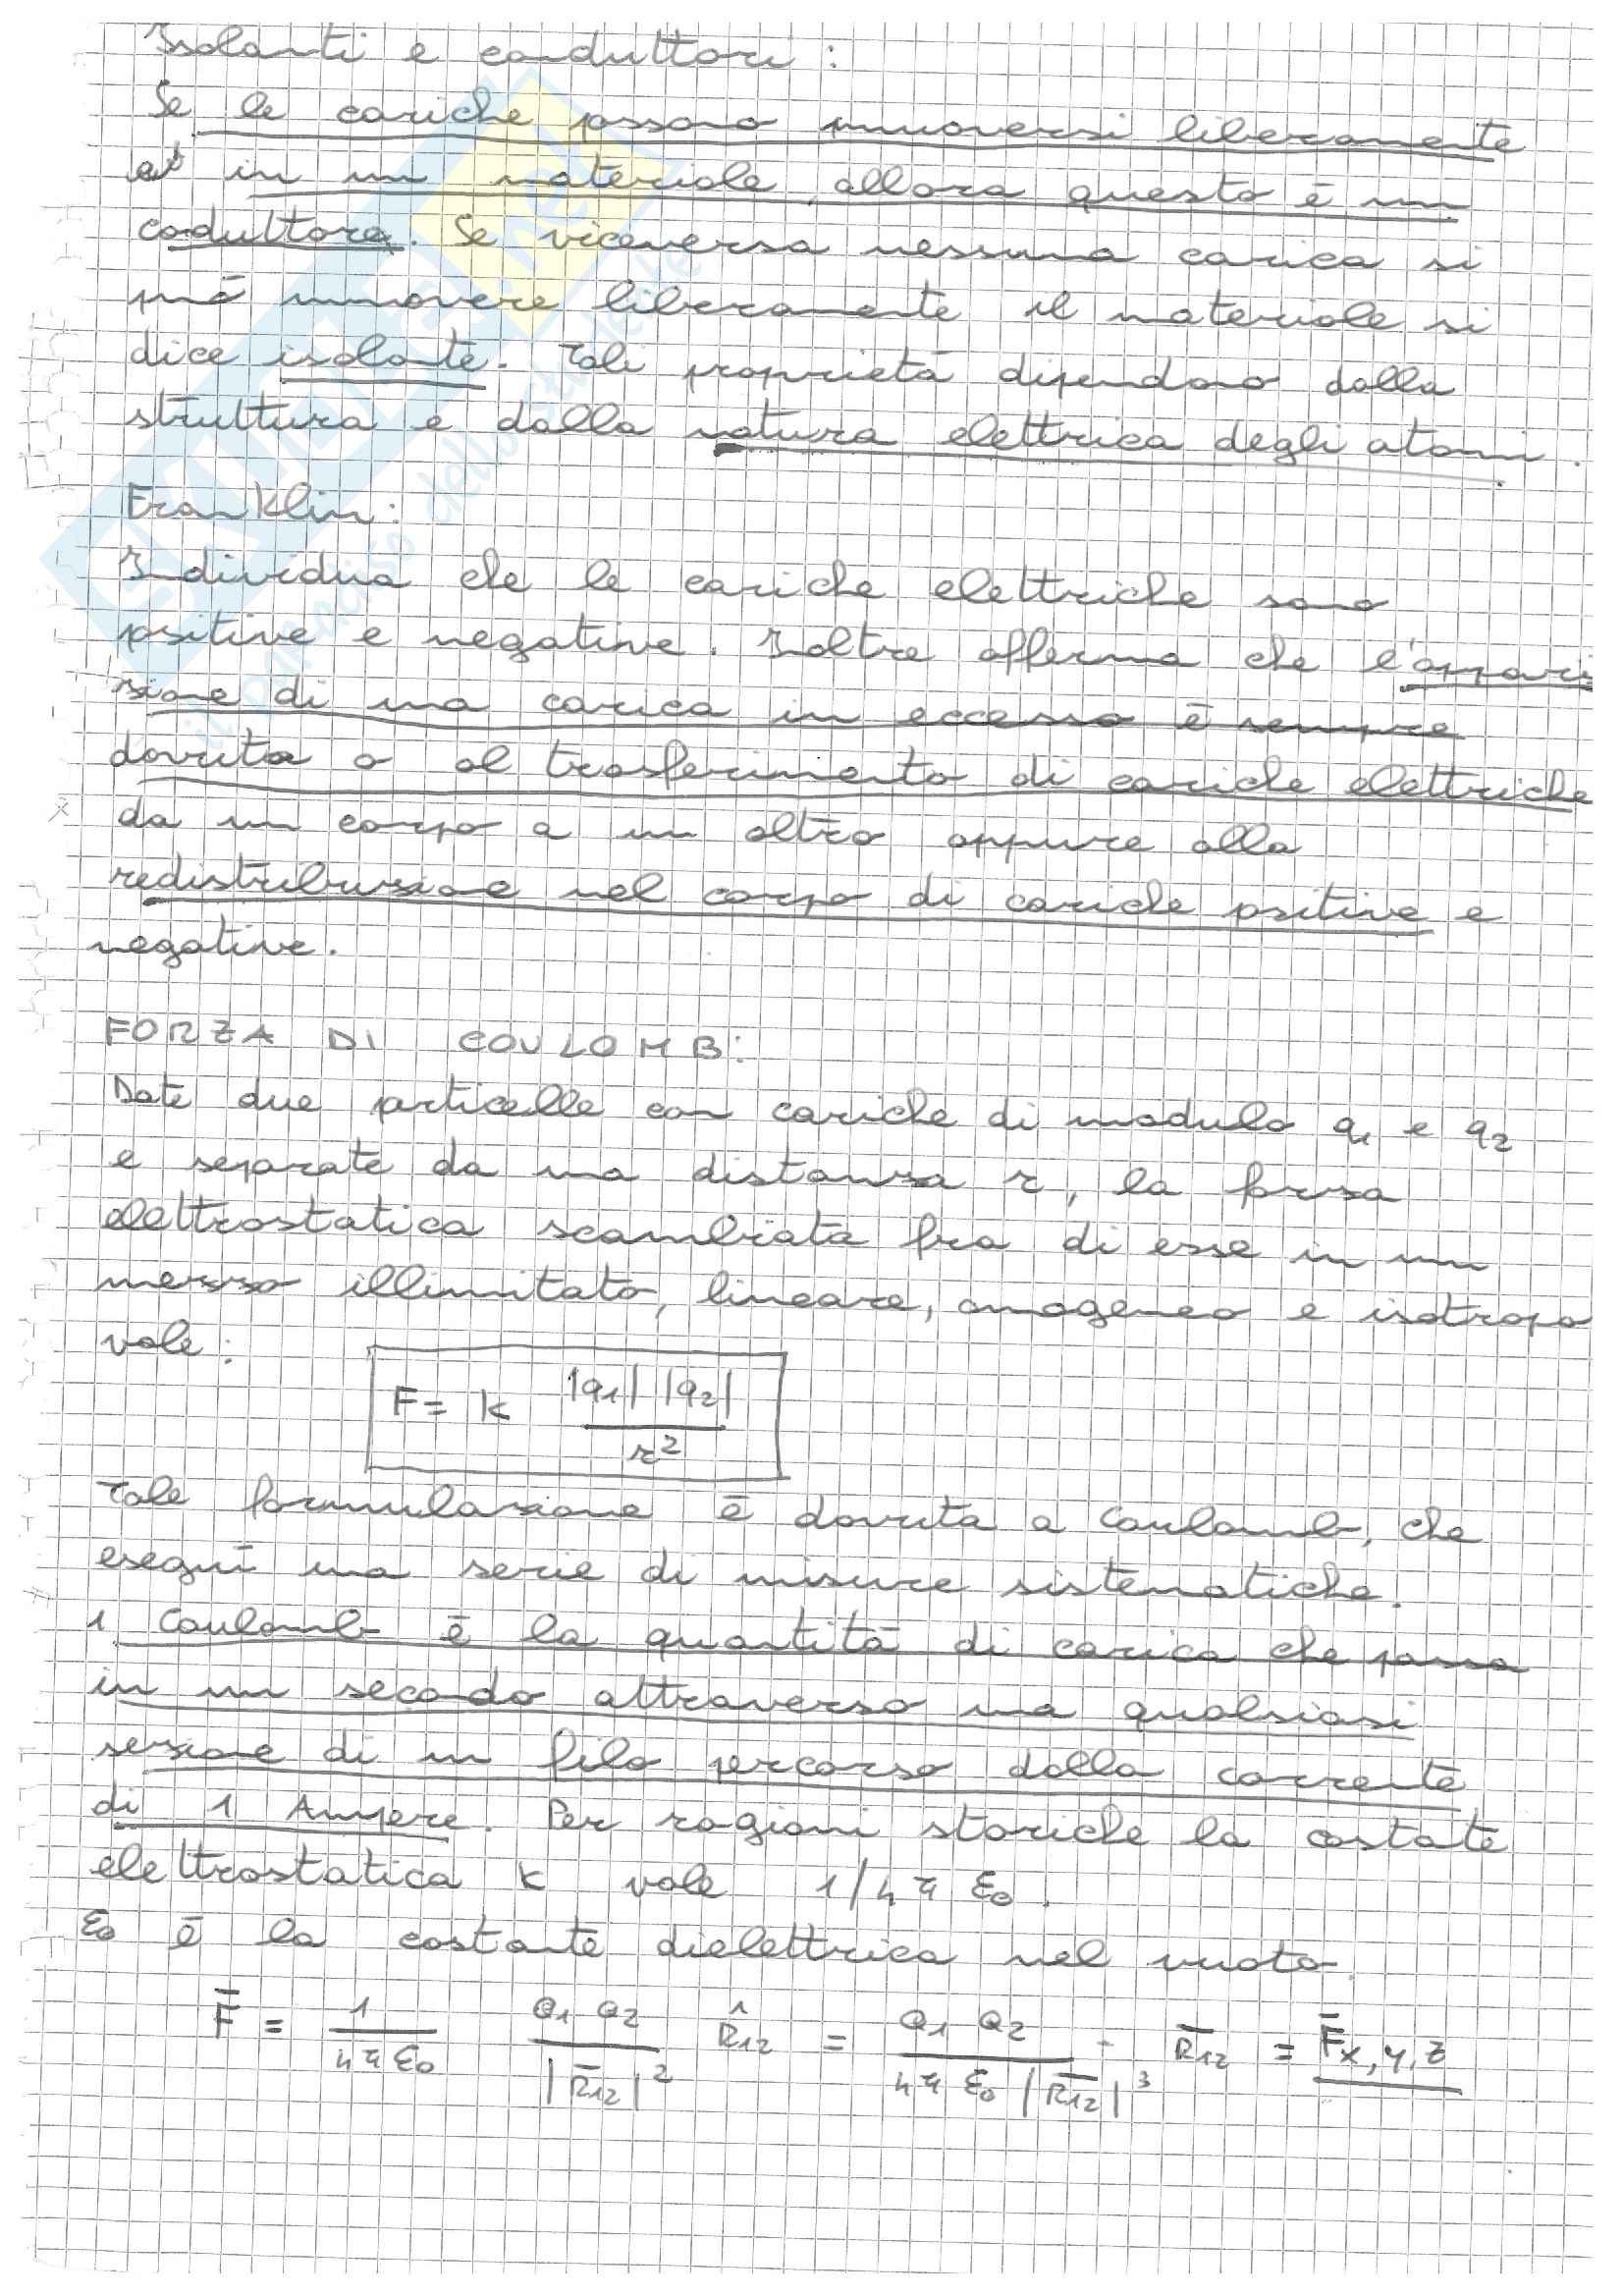 Isolanti e conduttori:
Se le cariche possono muoversi liberamente
in un materiale, allora questo è un
conduttore. Se viceversa nessuna carica si
può muovere liberamente il materiale si
dice isolante. Tali proprietà dipendono dalla
struttura e dalla natura elettrica degli atomi.
Franklin:
Individua che le cariche elettriche sono
positive e negative. Inoltre afferma che l'appari
zione di una carica in eccesso è sempre
dovuta o al trasferimento di cariche elettriche
da un corpo a un altro oppure alla
redistribuzione nel corpo di cariche positive e
negative.
FORZA DI COULOMB:
Date due particelle con cariche di modulo q1 e q2
e separate da una distanza r, la forza
elettrostatica scambiata fra di esse in un
mezzo illimitato, lineare, omogeneo e isotropo
vale:
F = k |q1| |q2| / r²
Tale formulazione è dovuta a Coulomb, che
eseguì una serie di misure sistematiche.
1 Coulomb è la quantità di carica che passa
in un secondo attraverso una qualsiasi
sezione di un filo percorso dalla corrente
di 1 Ampere. Per ragioni storiche la costante
elettrostatica k vale 1/4π ε0.
ε0 è la costante dielettrica nel vuoto.
F̄ = 1 / 4π ε0 Q1 Q2 / |R̄12|² R̂12 = Q1 Q2 / 4π ε0 |R̄12|³ · R̄12 = F̄x,y,z